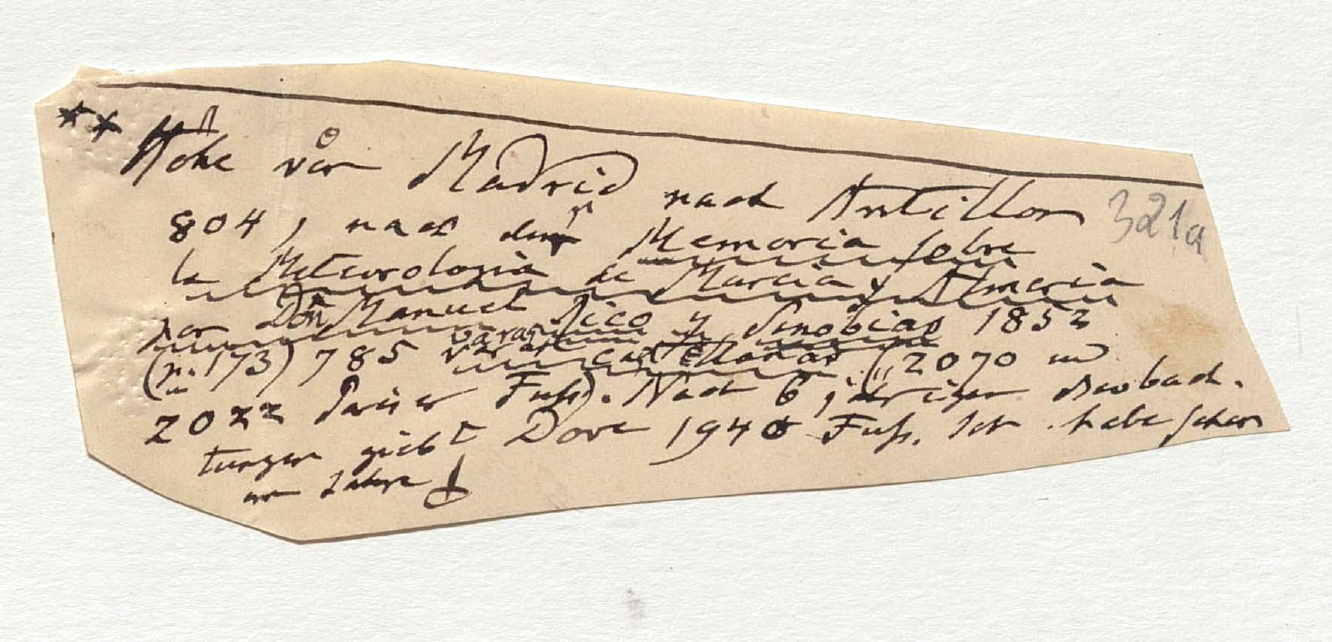 ** Höhe von Madrid nach Antillon
321a
804, nach dem Memoria sobre
la Meteorologia de Murcia y Almeria
por Don Manuel Rico y Sinobias 1852
(p. 173) 785 varas castellanas (2070 und
2022 Pariser Fuß). Nach 6jährigen Beobach-
tungen giebt Dove 1940 Fuß. Ich habe schon
im Jahre